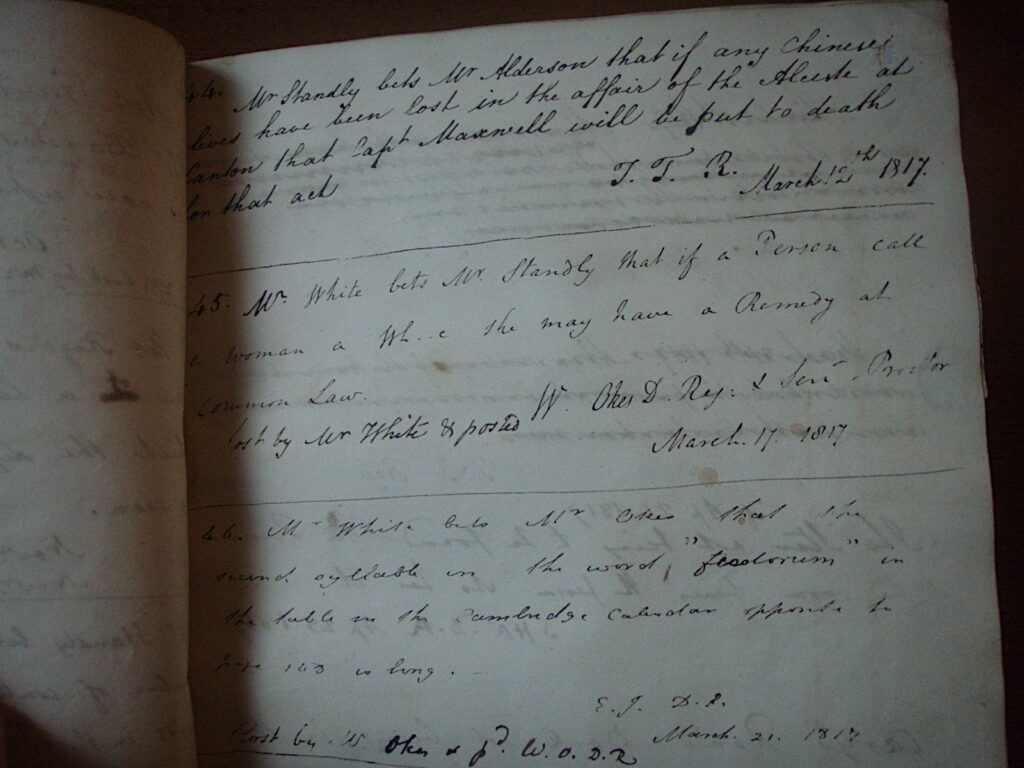 44. Mr Standly bets Mr Alderson that if any Chinese
lives have been lost in the affair of the Alceste at
Canton that Capt Maxwell will be put to death
for that act
T. T. R. March 12th 1817.
45. Mr White bets Mr Standly that if a Person call
a woman a Wh..e she may have a Remedy at
Common Law.
lost by Mr White & posted W. Okes D. Reg: & Senr Proctor
March. 17. 1817
46. Mr White bets Mr Okes that the
second syllable in the word "feodorum" in
the table in the Cambridge Calendar opposite to
page 143 is long.
E. J.
March. 21. 1817
Lost by Mr Okes & pd. W. O. D. R